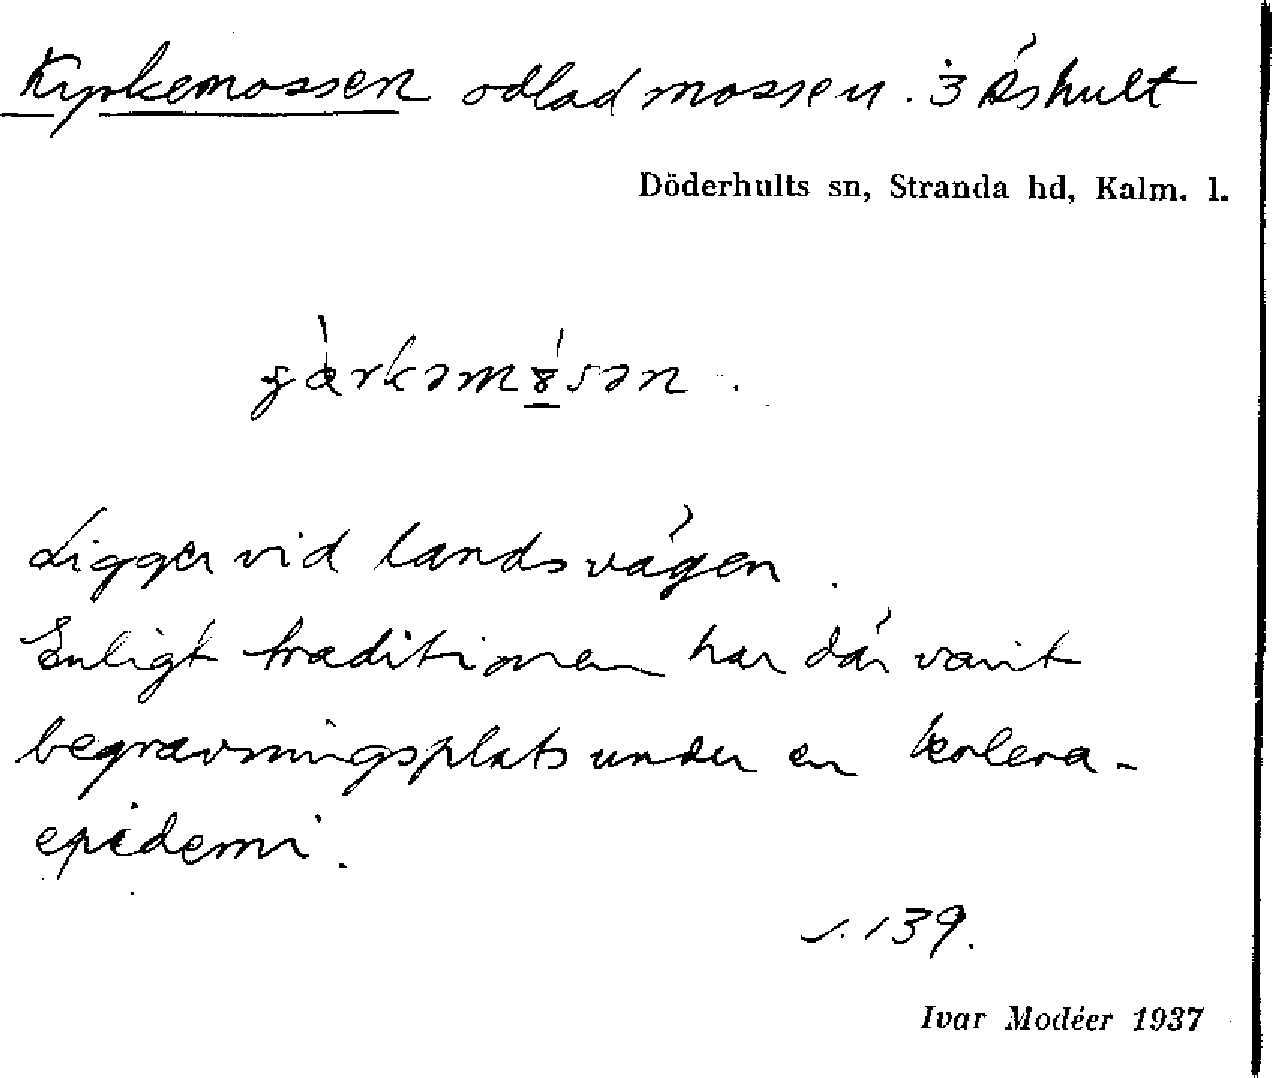 Kyrkemossen odlad mossen. i Åshult
Döderhults sn, Stranda hd, Kalm. l.
Ligger vid landsvägen.
Enligt traditionen har där varit
begravningsplats under en kolera-
epidemi.
s. 139.
Ivar Modéer 1937